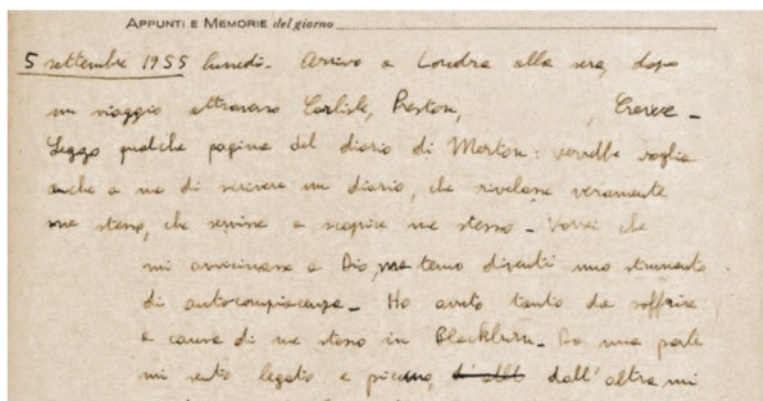 APPUNTI E MEMORIE del giorno
5 settembre 1955 lunedì. Arrivo a Londra alla sera, dopo
un viaggio attraverso Carlisle, Preston, , Crewe -
Leggo qualche pagina del diario di Merton: verrebbe voglia
anche a me di scrivere un diario, che rivelasse veramente
me stesso, che servisse a scoprire me stesso - Vorrei che
mi avvicinasse a Dio, ma temo diventi uno strumento
di autocompiacenza - Ho avuto tanto da soffrire
a causa di me stesso in Blackburn - Da una parte
mi sento legato e piccino, dall'altra mi